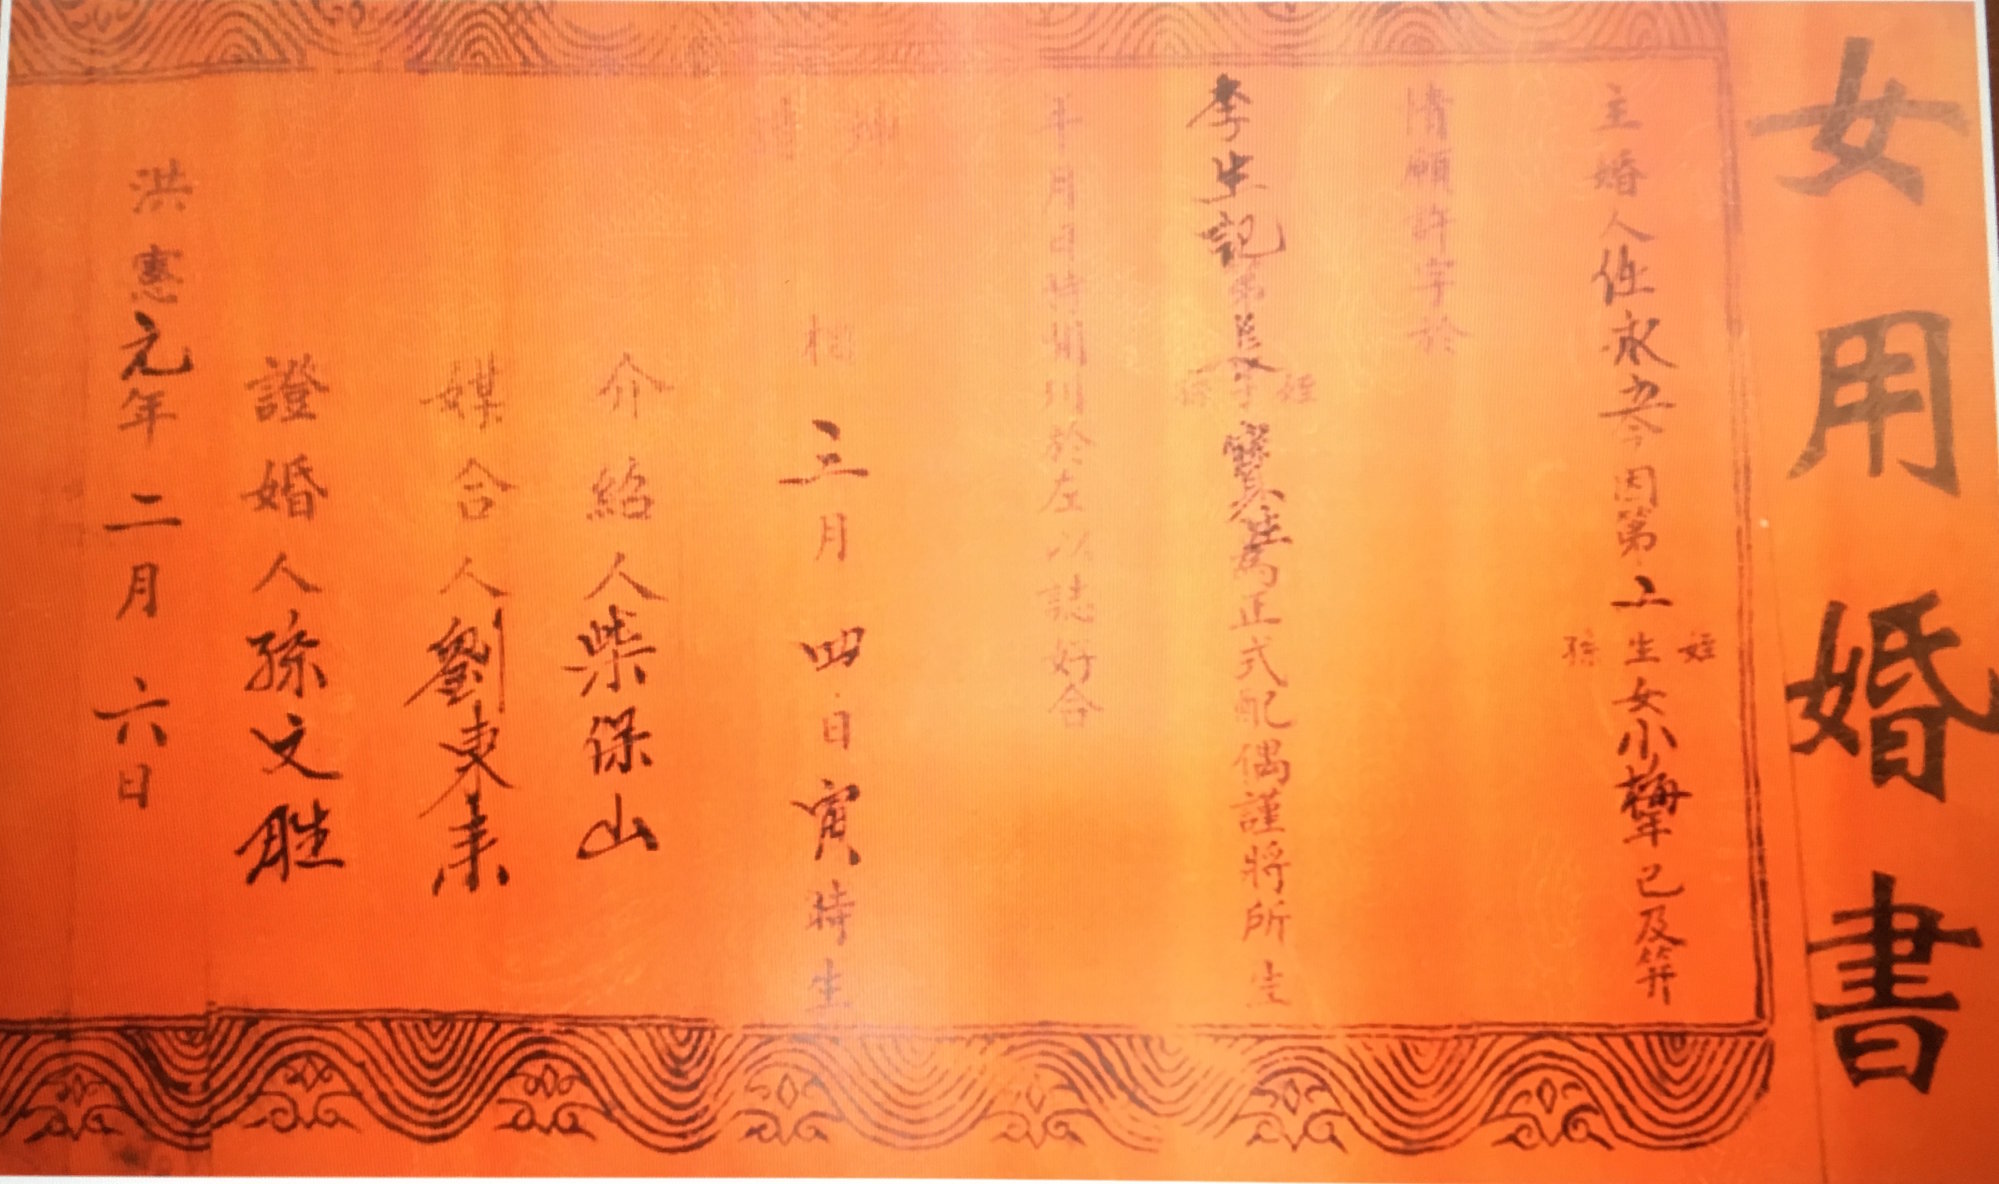 女用婚書
主婚人任永苓今因第二姪生孫女小梅年已及笄
情願許字於
李生記弟長姪子孫寶生爲正式配偶謹將所生
年月日時開列於左以誌好合
坤造
三月四日寅時生
介紹人柴保山
媒合人劉東來
證婚人孫文勝
洪憲元年二月六日